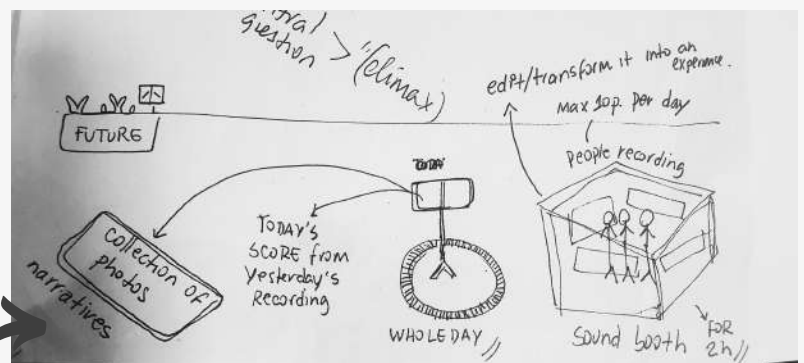 question > "(climax)
edit/transform it into an
experience.
max 10p. per day
people recording
FUTURE
TODAY
TODAY'S
SCORE from
Yesterday's
Recording
collection of
photos
narratives
WHOLE DAY
sound booth
FOR
2h